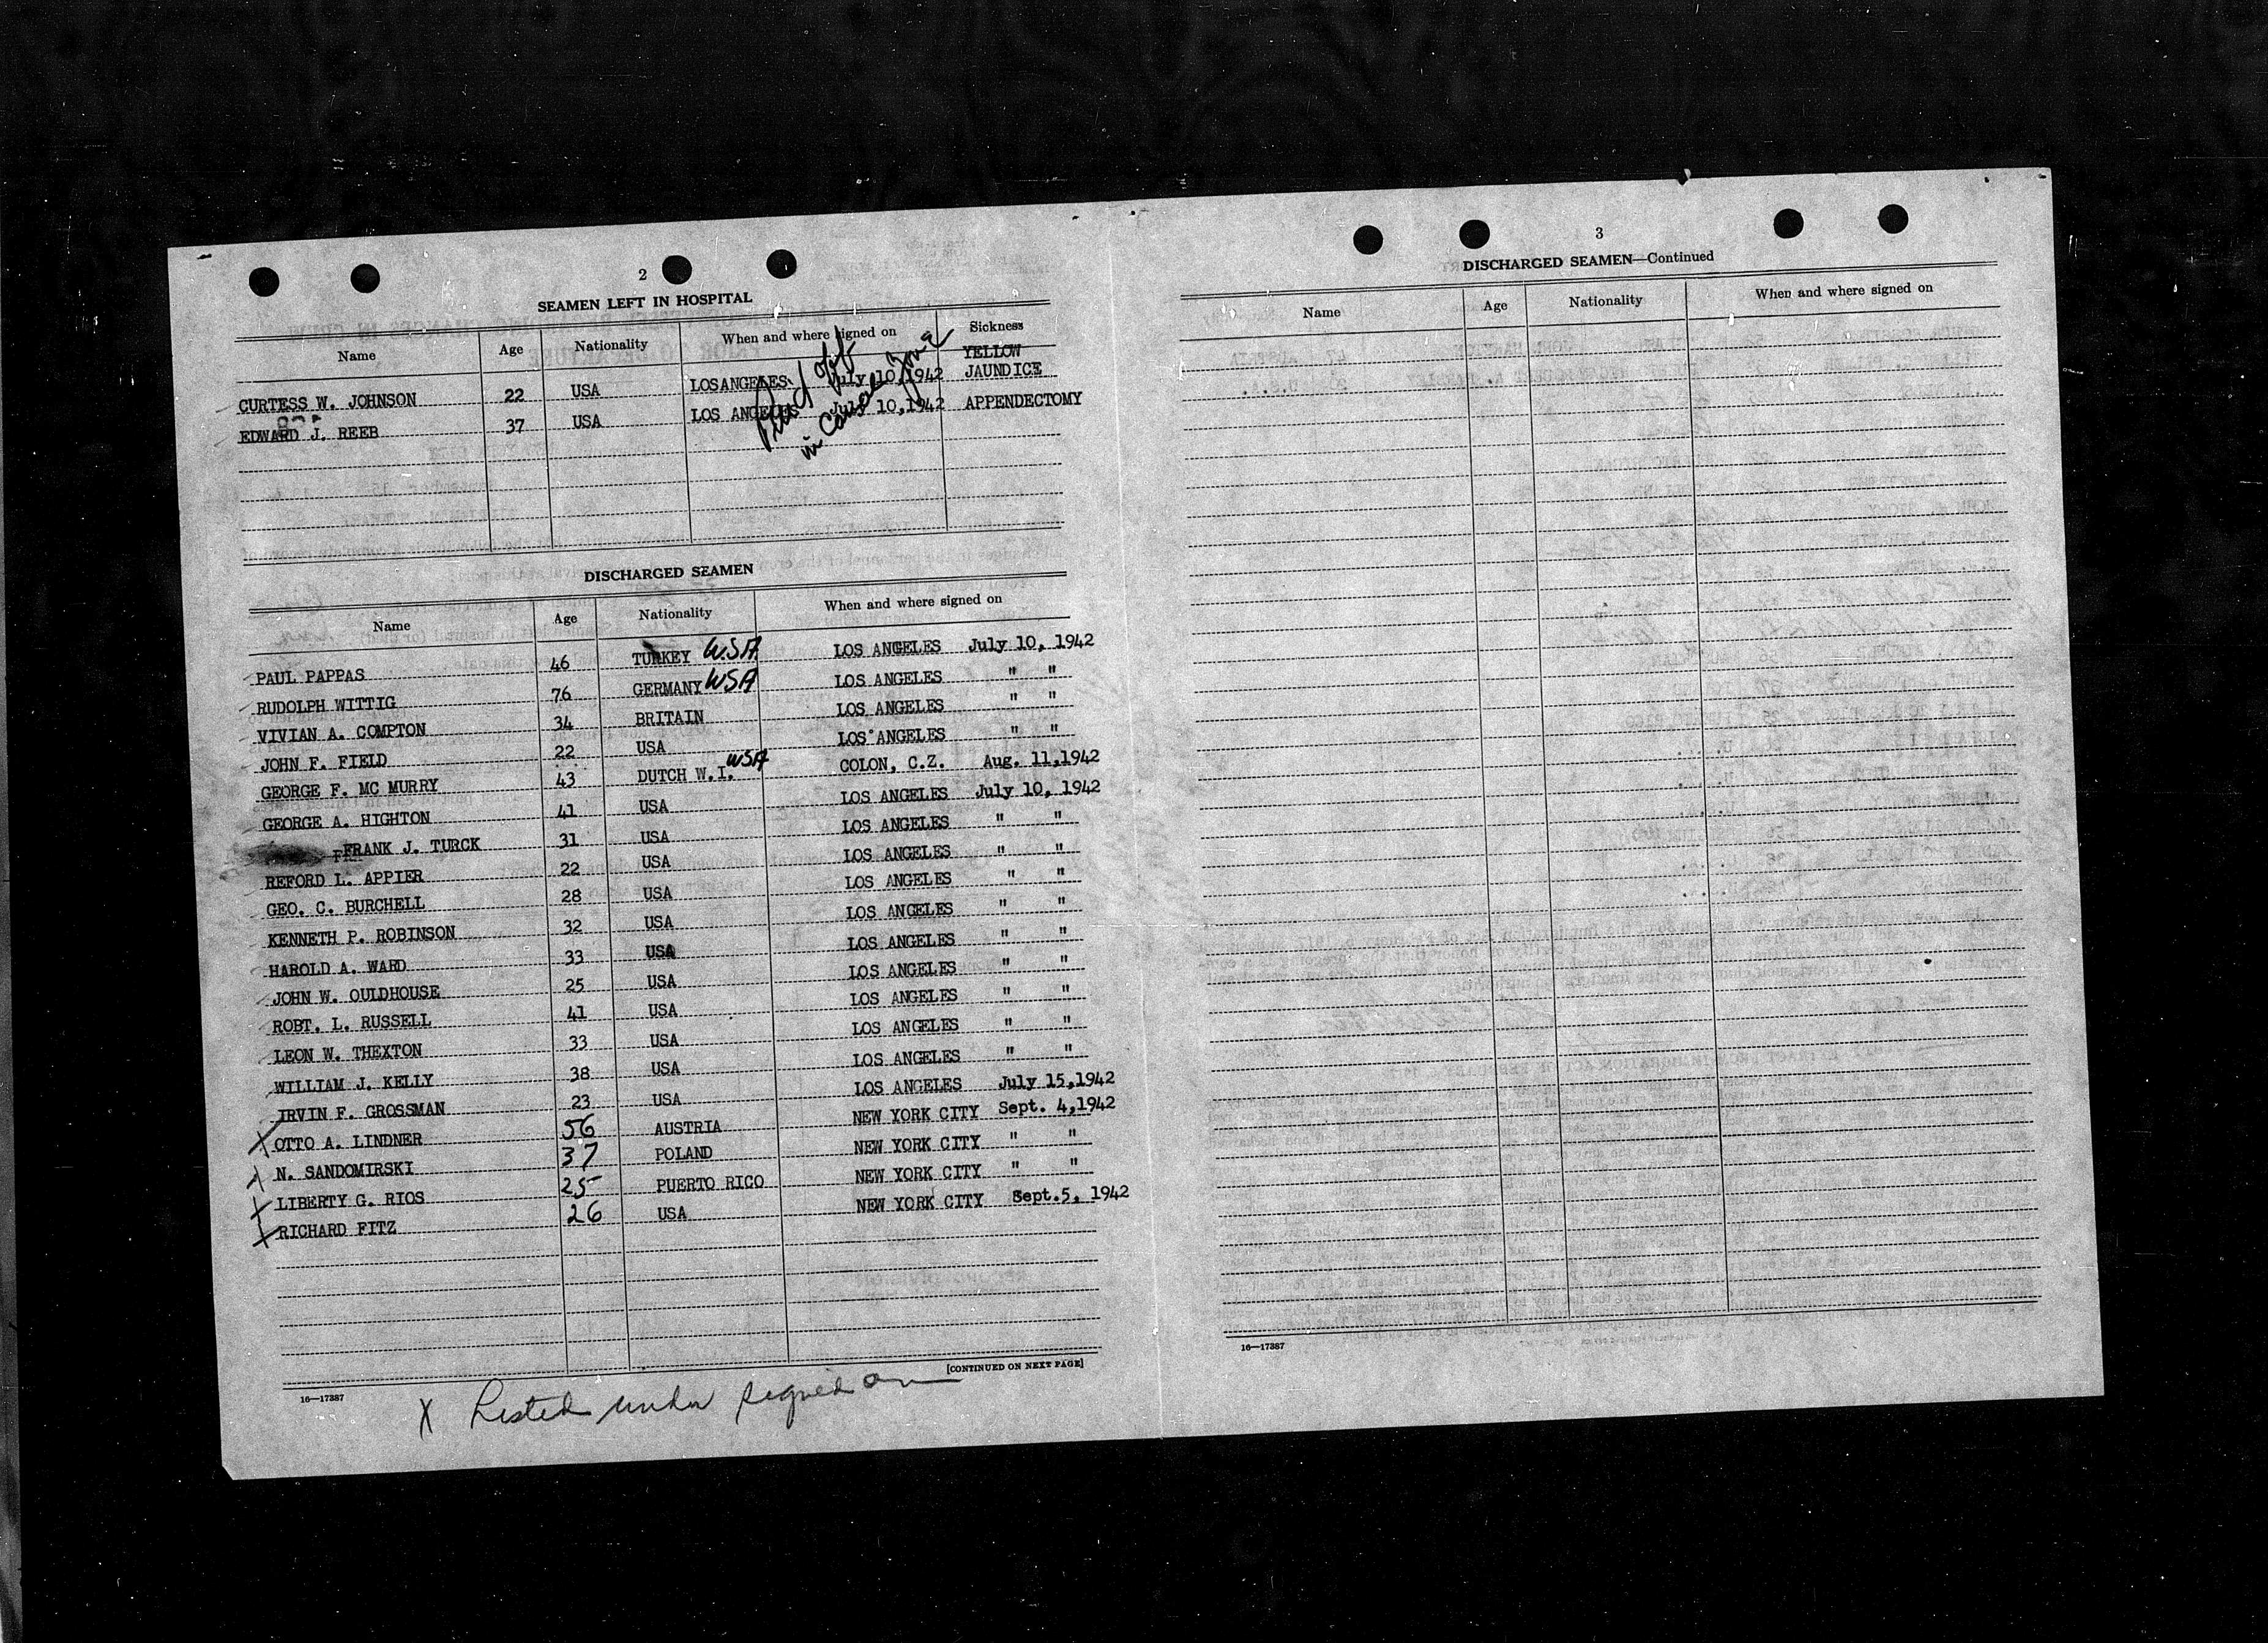 2
SEAMEN LEFT IN HOSPITAL
Name Age Nationality When and where signed on Sickness
CURTESS W. JOHNSON 22 USA LOS ANGELES July 10, 1942 YELLOW JAUNDICE
EDWARD J. REEB 37 USA LOS ANGELES July 10, 1942 APPENDECTOMY
Paid off
in Canal Zone
DISCHARGED SEAMEN
Name Age Nationality When and where signed on
PAUL PAPPAS 46 TURKEY USA LOS ANGELES July 10, 1942
RUDOLPH WITTIG 76 GERMANY USA LOS ANGELES " "
VIVIAN A. COMPTON 34 BRITAIN LOS ANGELES " "
JOHN F. FIELD 22 USA LOS ANGELES " "
GEORGE F. MC MURRY 43 DUTCH W.I. USA COLON, C.Z. Aug. 11,1942
GEORGE A. HIGHTON 41 USA LOS ANGELES July 10, 1942
FRANK J. TURCK 31 USA LOS ANGELES " "
REFORD L. APPIER 22 USA LOS ANGELES " "
GEO. C. BURCHELL 28 USA LOS ANGELES " "
KENNETH P. ROBINSON 32 USA LOS ANGELES " "
HAROLD A. WARD 33 USA LOS ANGELES " "
JOHN W. OULDHOUSE 25 USA LOS ANGELES " "
ROBT. L. RUSSELL 41 USA LOS ANGELES " "
LEON W. THEXTON 33 USA LOS ANGELES " "
WILLIAM J. KELLY 38 USA LOS ANGELES " "
IRVIN F. GROSSMAN 23 USA LOS ANGELES July 15,1942
X OTTO A. LINDNER 56 AUSTRIA NEW YORK CITY Sept. 4,1942
X N. SANDOMIRSKI 37 POLAND NEW YORK CITY " "
X LIBERTY G. RIOS 25 PUERTO RICO NEW YORK CITY " "
X RICHARD FITZ 26 USA NEW YORK CITY Sept.5, 1942
[CONTINUED ON NEXT PAGE]
16—17387
X Listed under signed on
3
DISCHARGED SEAMEN—Continued
Name Age Nationality When and where signed on
16—17387